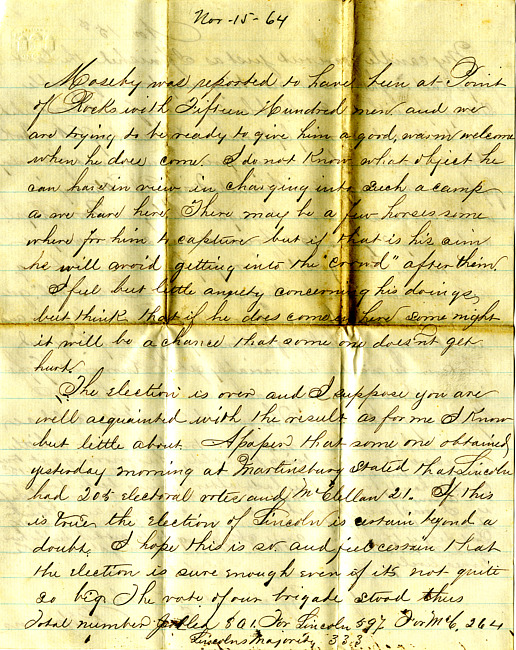 Nov-15-64
Moseby was reported to have been at Point
of Rocks with Fifteen Hundred men and we
are trying to be ready to give him a good, warm welcome
when he does come. I do not Know what object he
can have in view in charging into such a camp
as we have here. There may be a few horses some
where for him to capture but if that is his aim
he will avoid getting into the "crowd" after them.
I feel but little anxiety concerning his doings,
but think that if he does come in here some night
it will be a chance that some one doesn't get
hurt.
The election is over and I suppose you are
well acquainted with the result as for me I Know
but little about. A paper that some one obtained
yesterday morning at Martinsburg stated that Lincoln
had 205 electoral votes and McClellan 21. If this
is true the election of Lincoln is certain beyond a
doubt. I hope this is so and feel certain that
the election is sure enough even if its not quite
so big. The vote of our brigade stood thus
Total number polled 861. For Lincoln 597 For McC, 264
Lincolns Majority 333